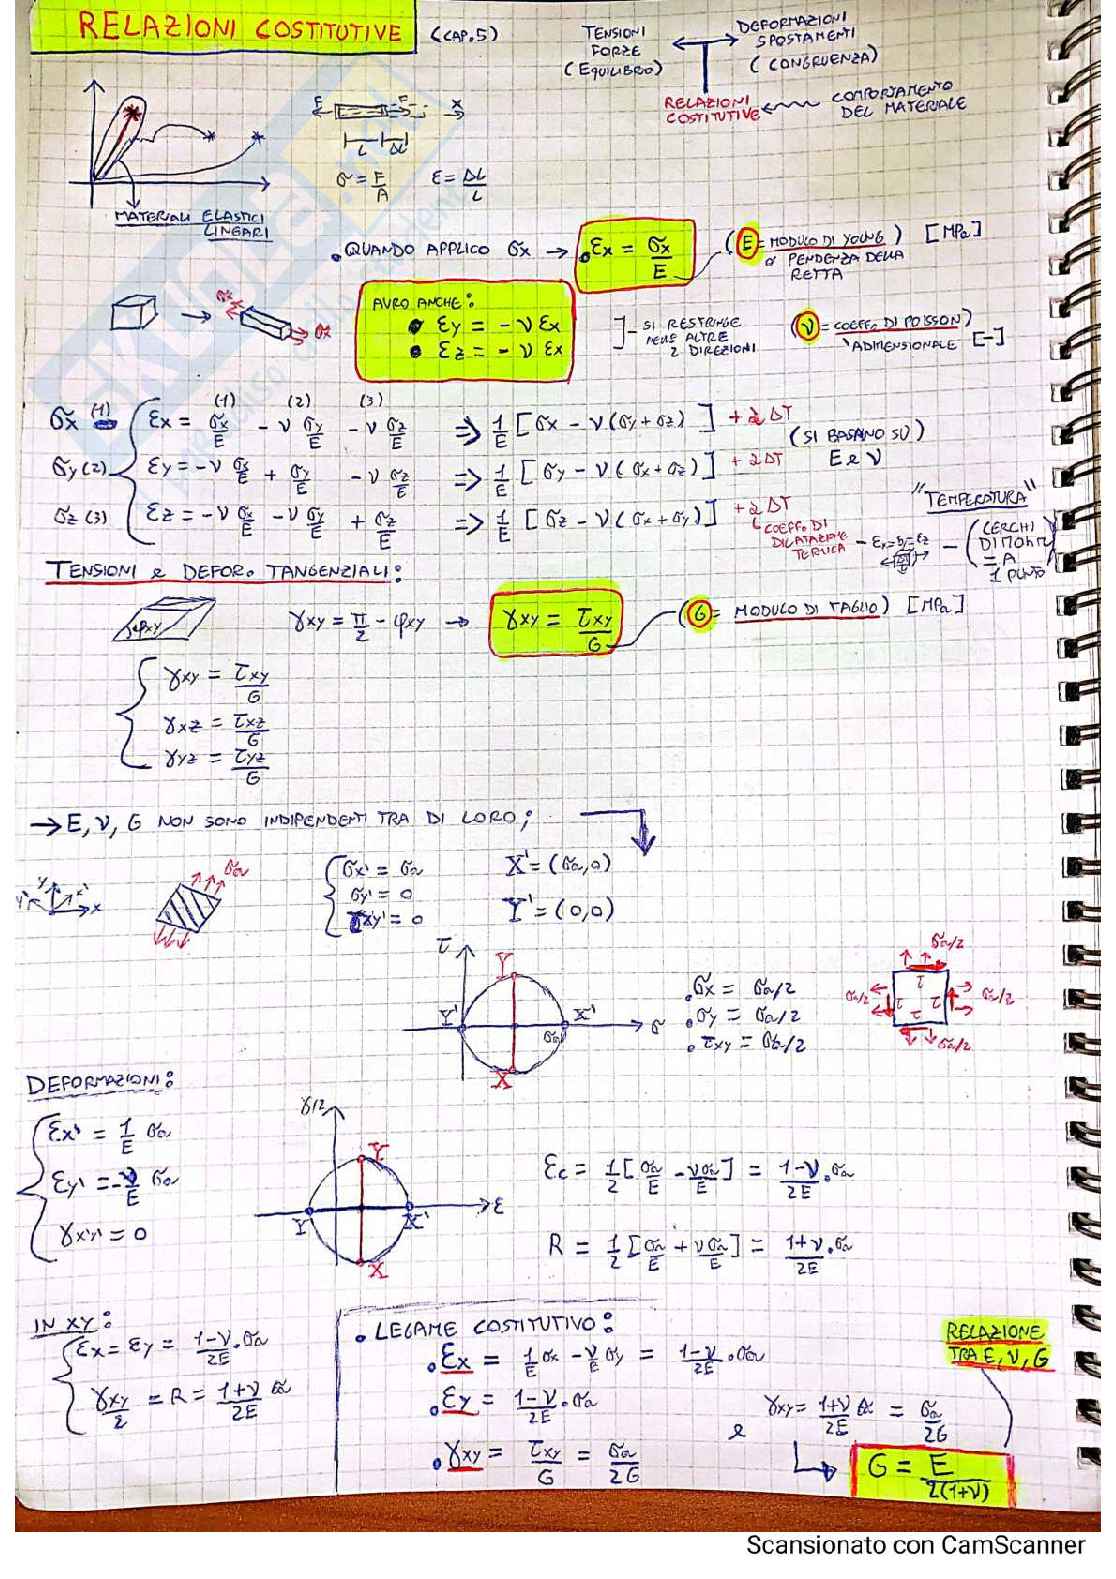 RELAZIONI COSTITUTIVE (CAP.5)
TENSIONI
FORZE
(EQUILIBRIO)
DEFORMAZIONI
SPOSTAMENTI
(CONGRUENZA)
RELAZIONI
COSTITUTIVE
COMPORTAMENTO
DEL MATERIALE
F F x
L ΔL
σ = F/A ε = ΔL/L
MATERIALI ELASTICI
LINEARI
• QUANDO APPLICO σx → • εx = σx/E
(E = MODULO DI YOUNG) [MPa]
o' PENDENZA DELLA
RETTA
AVRO ANCHE:
• εy = -ν εx
• εz = -ν εx
SI RESTRINGE
NELLE ALTRE
2 DIREZIONI
(ν = COEFF. DI POISSON)
ADIMENSIONALE [-]
σx σx
(1) (2) (3)
σx (1) εx = σx/E - ν σy/E - ν σz/E ⇒ 1/E [σx - ν(σy + σz)] + αΔT
(SI BASANO SU)
E e ν
σy (2) εy = -ν σx/E + σy/E - ν σz/E ⇒ 1/E [σy - ν(σx + σz)] + αΔT
σz (3) εz = -ν σx/E - ν σy/E + σz/E ⇒ 1/E [σz - ν(σx + σy)] + αΔT
COEFF. DI
DILATAZIONE
TERMICA
"TEMPERATURA"
εx = εy = εz
(CERCHI
DI MOHR
= A
1 PUNTO)
TENSIONI e DEFOR. TANGENZIALI:
φxy
γxy = π/2 - φxy → γxy = τxy/G
(G = MODULO DI TAGLIO) [MPa]
γxy = τxy/G
γxz = τxz/G
γyz = τyz/G
→ E, ν, G NON SONO INDIPENDENTI TRA DI LORO;
y' y x' x
σa
σx' = σa X' = (σa,0)
σy' = 0
τxy' = 0 Y' = (0,0)
τ Y Y' X' σa σ X
• σx = σa/2
• σy = σa/2
• τxy = σa/2
σa/2
σa/2 τ τ τ τ σa/2
σa/2
DEFORMAZIONI:
εx' = 1/E σa
εy' = -ν/E σa
γx'y' = 0
γ/2 Y Y' X' ε X
εc = 1/2 [σa/E - νσa/E] = 1-ν/2E · σa
R = 1/2 [σa/E + νσa/E] = 1+ν/2E · σa
IN XY:
εx = εy = 1-ν/2E · σa
γxy/2 = R = 1+ν/2E σa
• LEGAME COSTITUTIVO:
• εx = 1/E σx - ν/E σy = 1-ν/2E · σa
• εy = 1-ν/2E · σa
• γxy = τxy/G = σa/2G
RELAZIONE
TRA E, ν, G
e γxy = 1+ν/2E σa = σa/2G
G = E/2(1+ν)
Scansionato con CamScanner